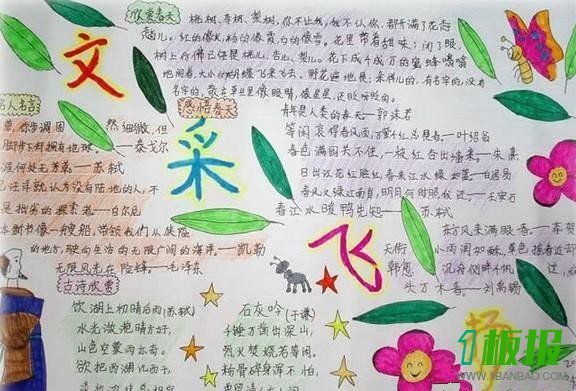 欣赏春天
桃树、李树、梨树，你不让我，我不认你，都开满了花赶
趟儿。红的像火，粉的像霞，白的像雪。花里带着甜味；闭了眼，
树上仿佛已经是桃儿、杏儿、梨儿。花下成千成百的蜜蜂嗡嗡
地闹着，大小的蝴蝶飞来飞去。野花遍地是；杂样儿的，有名字的，没有
名字的，散在草丛里像眼睛，像星星，还眨呀眨的。
文
采
飞
扬
名人名言
然细微，但
脚步下却拥有地球——泰戈尔
涯何处无芳草——苏轼
是拙劣的探索者——白尔尼
本新书像一艘船，带领我们从狭隘
的地方，驶向生活的无限广阔的海洋——凯勒
无限风光在险峰——毛泽东
感悟春天
青年是人类的春天——郭沫若
等闲识得春风面，万紫千红总是春——叶绍翁
春色满园关不住，一枝红杏出墙来——朱熹
日出江花红胜火，春来江水绿如蓝——白居易
春风又绿江南岸，明月何时照我还。——王安石
春江水暖鸭先知——苏轼
东方风来满眼春。——李贺
天街小雨润如酥，草色
韩愈
沉舟侧畔千帆
头万木春。——刘禹锡
古诗欣赏
饮湖上初晴后雨（苏轼）
水光潋滟晴方好，
山色空蒙雨亦奇。
欲把西湖
石灰吟（于谦）
千锤万凿出深山，
烈火焚烧若等闲。
粉骨碎身浑不怕，
板报
WWW.1BANBAO.COM